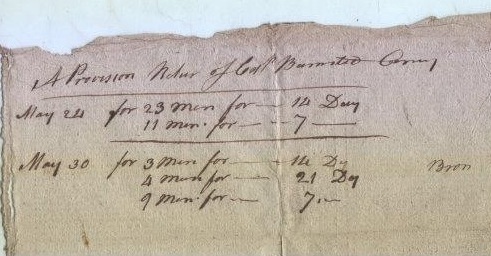 A Provision Retur of Cap^t Barnsted Comy
May 24 for 23 Men for — 14 Day
11 Men for — 7 —
May 30 for 3 Men for — 14 Dy
4 Men for — 21 Dy
9 Men for — 7 —
Bron